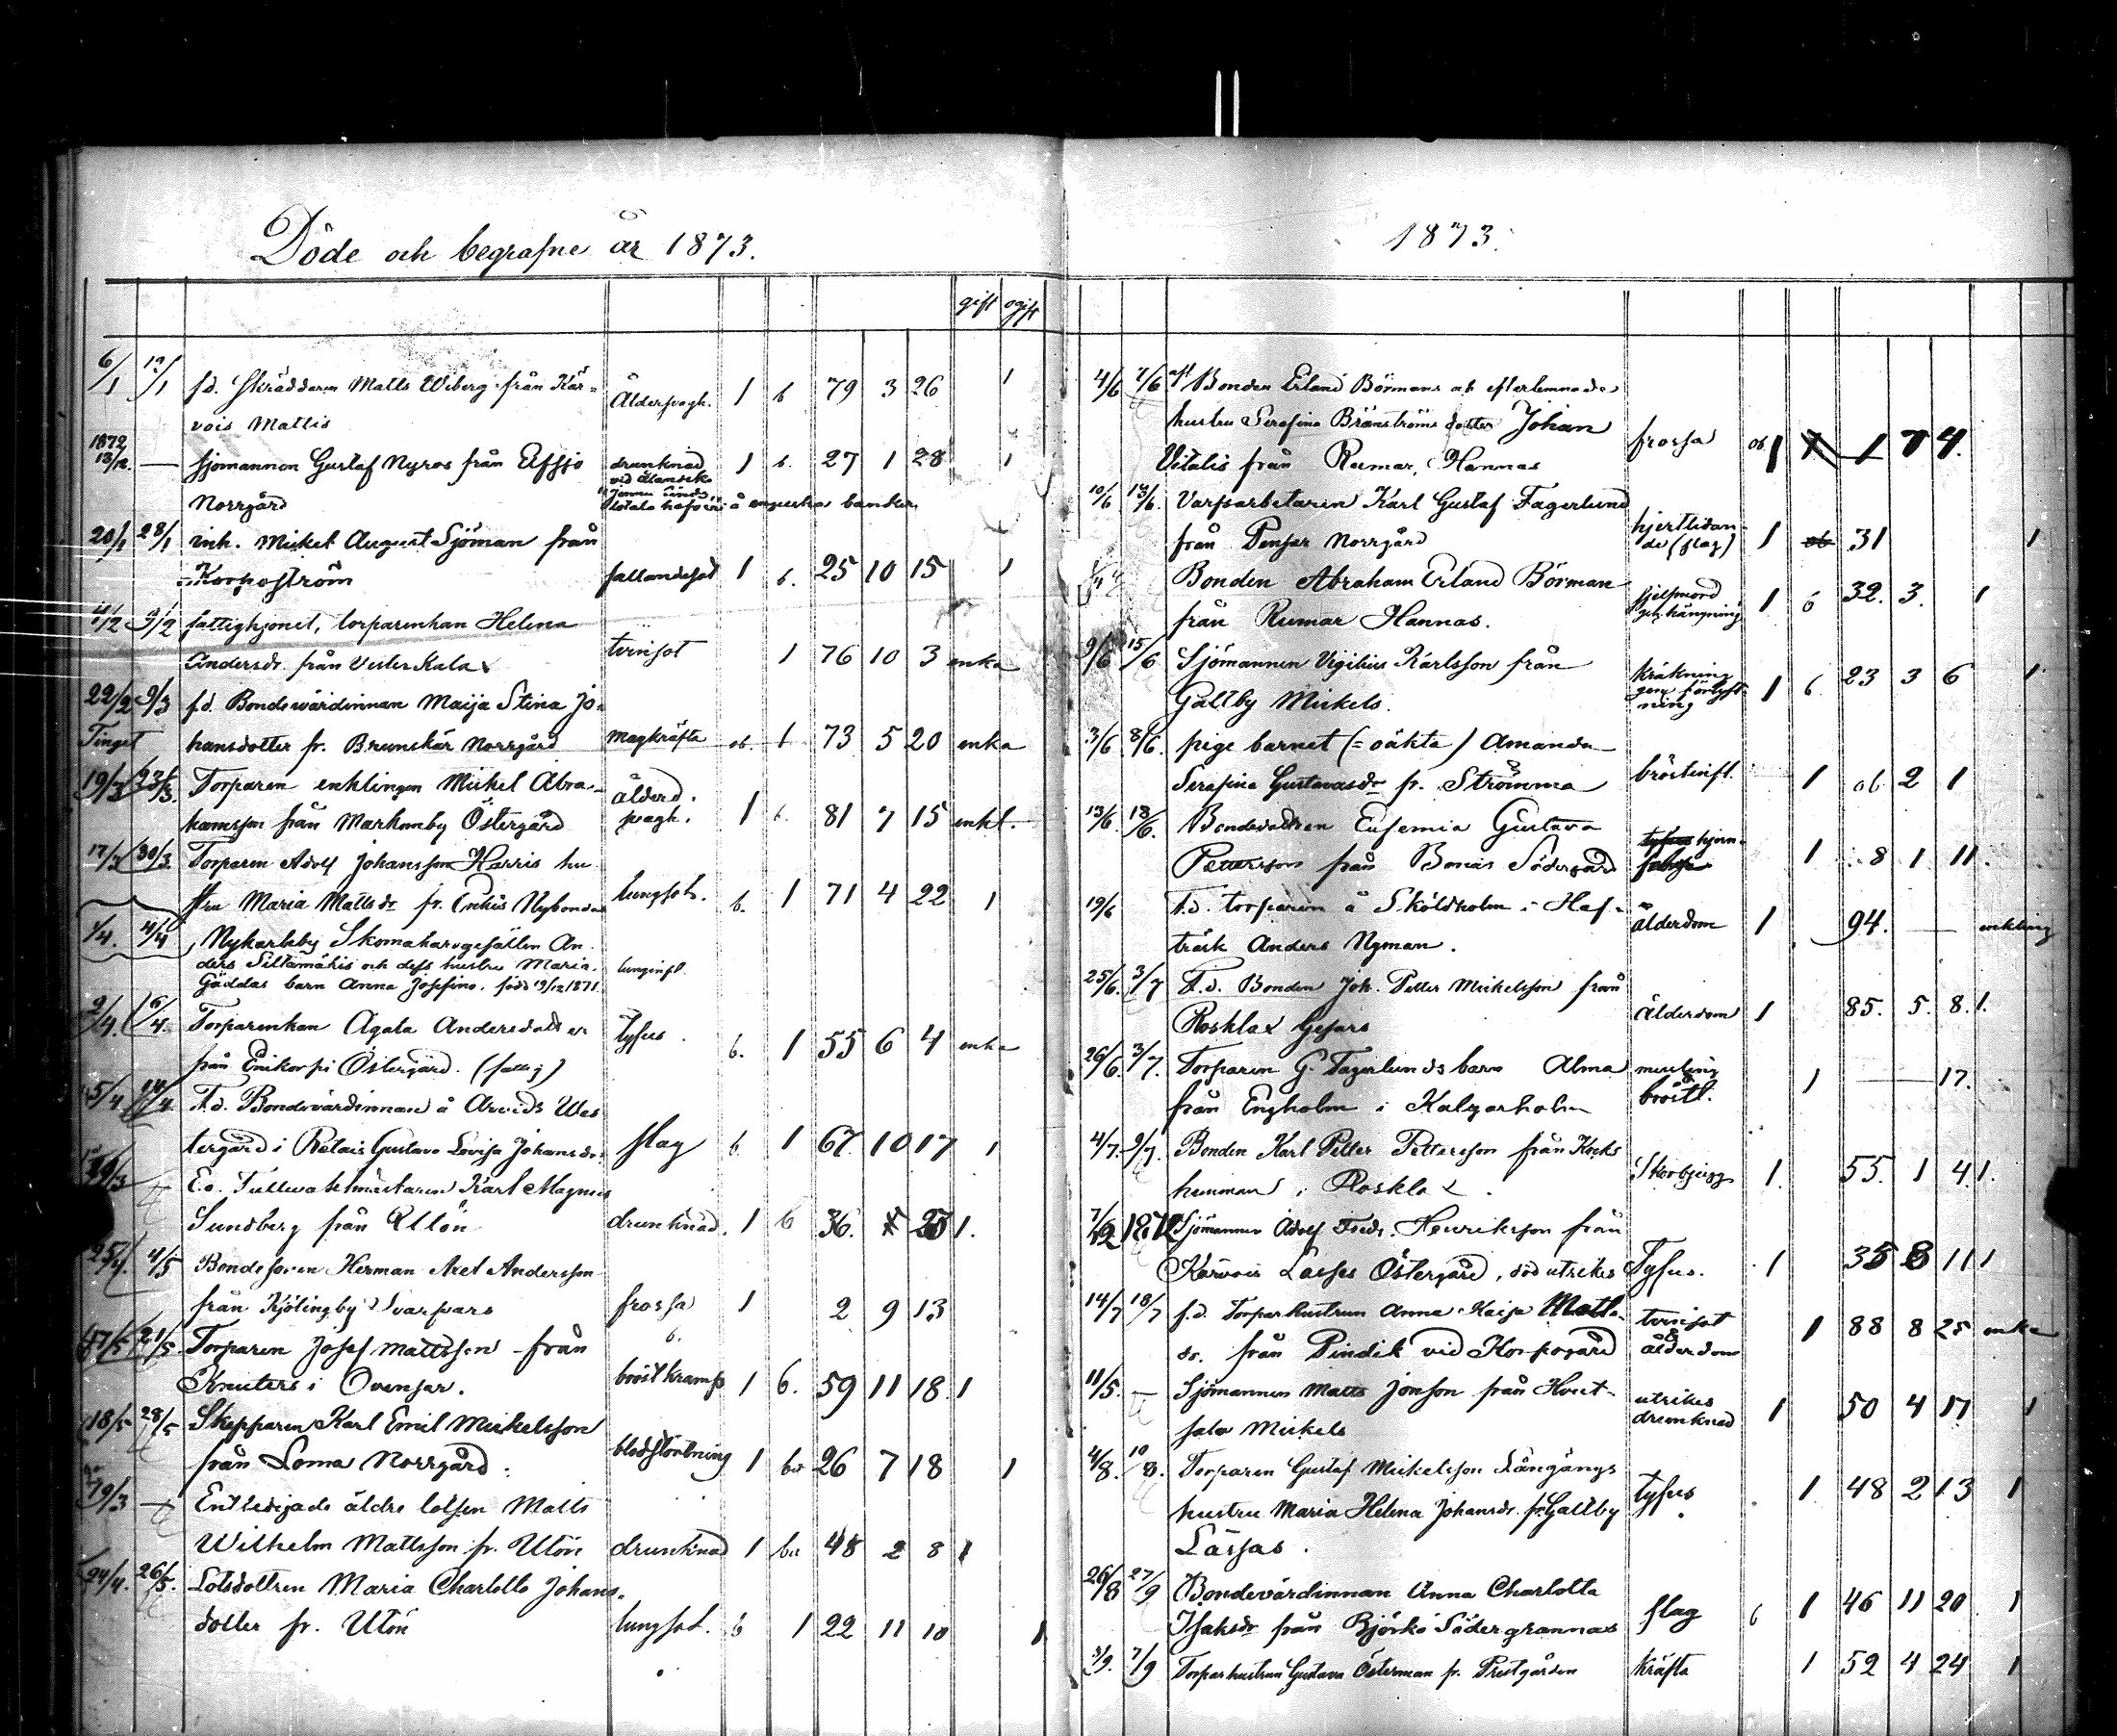 Döde och begrafne år 1873.
gift ogift
6/1 12/1 f.d. Skräddaren Matts Wiberg från Kär-
vois Mattis Ålderswagh. 1 b 79 3 26 1
1872
13/12. — sjömannen Gustaf Nyros från Elfsjö drunknad 1 b. 27 1 28 1
vid
Norrgård å engelska banker
20/1 28/1 inh. Mickel August Sjöman från
Korpoström fallandesot 1 b. 25 10 15 1
4/2 9/2 fattighjonet, torparenkan Helena
Andersdr. från Vester Kalax tvinsot 1 76 10 3 enka
22/2 9/3 f.d. Bondewärdinnan Maija Stina Jo-
Tinget hansdotter fr. Brunskär Norrgård magkräfta ob. 1 73 5 20 enka
19/3 23/3. Torparen enklingen Mickel Abra-
hamsson från Markomby Östergård ålderd. swagh. 1 b. 81 7 15 enkl.
17/3 30/3 Torparen Adolf Johansson Harris hu
stru Maria Mattsdr fr. Nybonda lungsot. b. 1 71 4 22 1
1/4. 4/4 Nykarleby Skomakaregesällen An-
ders Siltamäkis och dess hustru Maria
Gäddas barn Anna Josefina. född 19/12 1871. lunginfl.
2/4. 6/4 Torparenkan Agata Andersdotter
från Enikorpi Östergård. (fattig) tyfus. b. 1 55 6 4 enka
5/4 14/4 F.d. Bondevärdinnan å Arvids Wes
tergård i Retais Gustava Lovisa Johansdr. slag b. 1 67 10 17 1
29/3 — E.o. Tullvaktmästaren Karl Magnus
Sundberg från Utön drunknad. 1 b 36. 1.
25/4. 4/5 Bondesonen Herman Axel Andersson
från Kjölingby Svarfvars frossa 1 b. 2 9 13
17/5 21/5. Torparen Josef Mattsson från
Knuters i Ovensor. bröstkramp 1 b. 59 11 18 1
18/5 28/5 Skepparen Karl Emil Mickelsson
från Loma Norrgård. blodstörtning 1 ba 26 7 18 1
29/3 — Entledigade äldre lotsen Matts
Wilhelm Mattsson fr. Utön drunknad 1 ba 48 2 8 1
24/4. 26/5. Lotsdottren Maria Charlotta Johans-
dotter fr. Utön lungsot. b 1 22 11 10 1
1873.
4/6 7/6 Bonden Erland Börmans ob efterlemnade
hustru Serafina Bränströms dotter Johan
Vitalis från Rumar, Hannas frossa ob. 1 1 7 4.
10/6 13/6. Varfsarbetaren Karl Gustaf Fagerlund
från Pensar Norrgård hjertlidan-
de (slag) 1 ob 31 1
Bonden Abraham Erland Börman
från Rumar Hannas. sjelfmord
gm hängning 1 b 32. 3. 1
9/6 15/6 Sjömannen Vigilius Karlsson från
Galtby Mickels. kräkning
gen. förlyft-
ning 1 b. 23 3 6 1
3/6 8/6. pige barnet (= oäkta) Amanda
Serafina Gustavasdr fr. Strömma bröstinfl. 1 ob 2 1
13/6. 18/6. Bondedottren Eufemia Gustava
Pettersson från Bonäs Södergård tyfus hjern-
feber 1 8 1 11.
19/6 F.d. torparen å Sköldholm i Haf-
träsk Anders Nyman. ålderdom 1 94. — enkling
25/6. 3/7 F.d. Bonden Joh. Petter Mickelsson från
Rosklax Gesars Ålderdom 1 85. 5. 8. 1.
26/6. 3/7. Torparen G. Fagerlunds barn Alma
från Engholm i Kalgarholm messling
bröstl. 1 — 17.
4/7. 9/7. Bonden Karl Petter Pettersson från Kocks
hemman i Rosklax. Skörbjugg 1. 55. 1 4. 1.
7/12 1872 Sjömannen Adolf Fredr. Henriksson från
Kärvois Lasses Östergård, död utrikes Tyfus. 1 35 8 11 1
14/7 18/7 f.d. Torparhustrun Anna Kaisa Matts-
dr. från Pindik vid Korpogård tvinsot
ålderdom 1 88 8 25 enka
11/5. — Sjömannen Matts Jonsson från Hvit-
salo Mickels utrikes
drunknad 1 50 4 17 1
4/8. 10/8. Torparen Gustaf Mickelsson Långängs
hustru Maria Helena Johansdr. fr. Galtby
Lassas. tyfus. 1 48 2 13 1
26/8 27/9 Bondevärdinnan Anna Charlotta
Isaksdr från Björkö Södergrannas slag b 1 46 11 20 1
3/9. 7/9 Torparhustrun Gustava Österman fr. Prestgården kräfta 1 52 4 24 1